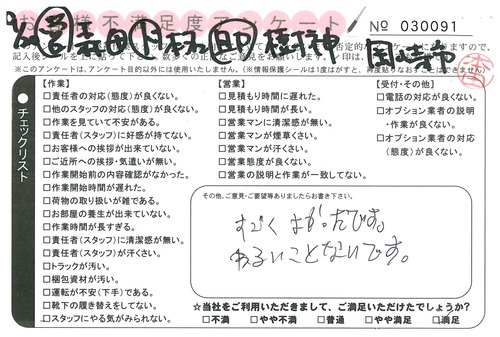 お客様不満足度アンケート
№ 030091
営 森田 杉本 印 岡崎市
※このアンケートは、アンケート目的以外には使用いたしません。(※情報保護シールは1度がはすと、再度貼りなおすことはできません)
チェックリスト
【作業】
□責任者の対応(態度)が良くない。
□他のスタッフの対応(態度)が良くない。
□作業を見ていて不安がある。
□責任者(スタッフ)に好感が持てない。
□お客様への挨拶が出来ていない。
□ご近所への挨拶・気遣いが無い。
□作業開始前の内容確認がなかった。
□作業開始時間が遅れた。
□荷物の取り扱いが雑である。
□お部屋の養生が出来ていない。
□作業時間が長すぎる。
□責任者(スタッフ)に清潔感が無い。
□責任者(スタッフ)が汗くさい。
□トラックが汚い。
□梱包資材が汚い。
□運転が不安(下手)である。
□靴下の履き替えをしてない。
□スタッフにやる気がみられない。
【営業】
□見積もり時間に遅れた。
□見積もり時間が長い。
□営業マンに清潔感が無い。
□営業マンが煙草くさい。
□営業マンが汗くさい。
□営業態度が良くない。
□営業の説明と作業が一致してない。
【受付・その他】
□電話の対応が良くない。
□オプション業者の説明
・作業が良くない。
□オプション業者の対応
(態度)が良くない。
その他、ご意見・ご要望等ありましたらお書き下さい。
すごくよかったです。
わるいことないです。
☆当社をご利用いただきまして、ご満足いただけたでしょうか?
□不満 □やや不満 □普通 □やや満足 □満足